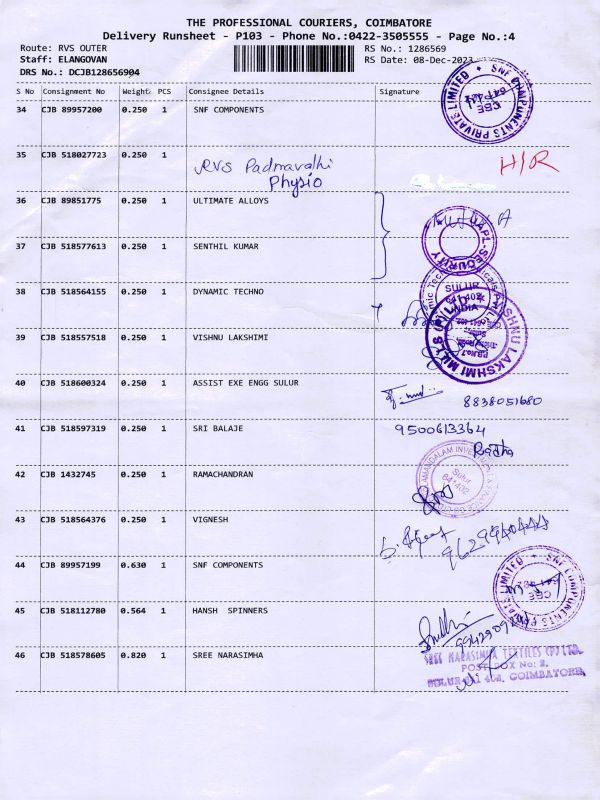 THE PROFESSIONAL COURIERS, COIMBATORE
Delivery Runsheet - P103 - Phone No.:0422-3505555 - Page No.:4
Route: RVS OUTER RS No.: 1286569
Staff: ELANGOVAN RS Date: 08-Dec-2023
DRS No.: DCJB128656904
S No Consignment No Weight PCS Consignee Details Signature
34 CJB 89957200 0.250 1 SNF COMPONENTS
SNF COMPONENTS PRIVATE LIMITED
CBE
35 CJB 518027723 0.250 1 RVS Padmavathi H/R
Physio
36 CJB 89851775 0.250 1 ULTIMATE ALLOYS
37 CJB 518577613 0.250 1 SENTHIL KUMAR
SECURITY
38 CJB 518564155 0.250 1 DYNAMIC TECHNO
SULUR
641 402
INDIA
39 CJB 518557518 0.250 1 VISHNU LAKSHIMI
VISHNU LAKSHMI MILLS (P) LTD
40 CJB 518600324 0.250 1 ASSIST EXE ENGG SULUR
8838051680
41 CJB 518597319 0.250 1 SRI BALAJE 9500613364
Radha
42 CJB 1432745 0.250 1 RAMACHANDRAN
Sulur
641 402
43 CJB 518564376 0.250 1 VIGNESH
44 CJB 89957199 0.630 1 SNF COMPONENTS
SNF COMPONENTS PRIVATE LIMITED
CBE
45 CJB 518112780 0.564 1 HANSH SPINNERS
46 CJB 518578605 0.820 1 SREE NARASIMHA
SREE NARASIMHA TEXTILES (P) LTD.
POST BOX No: 2,
SULUR 641 402, COIMBATORE.